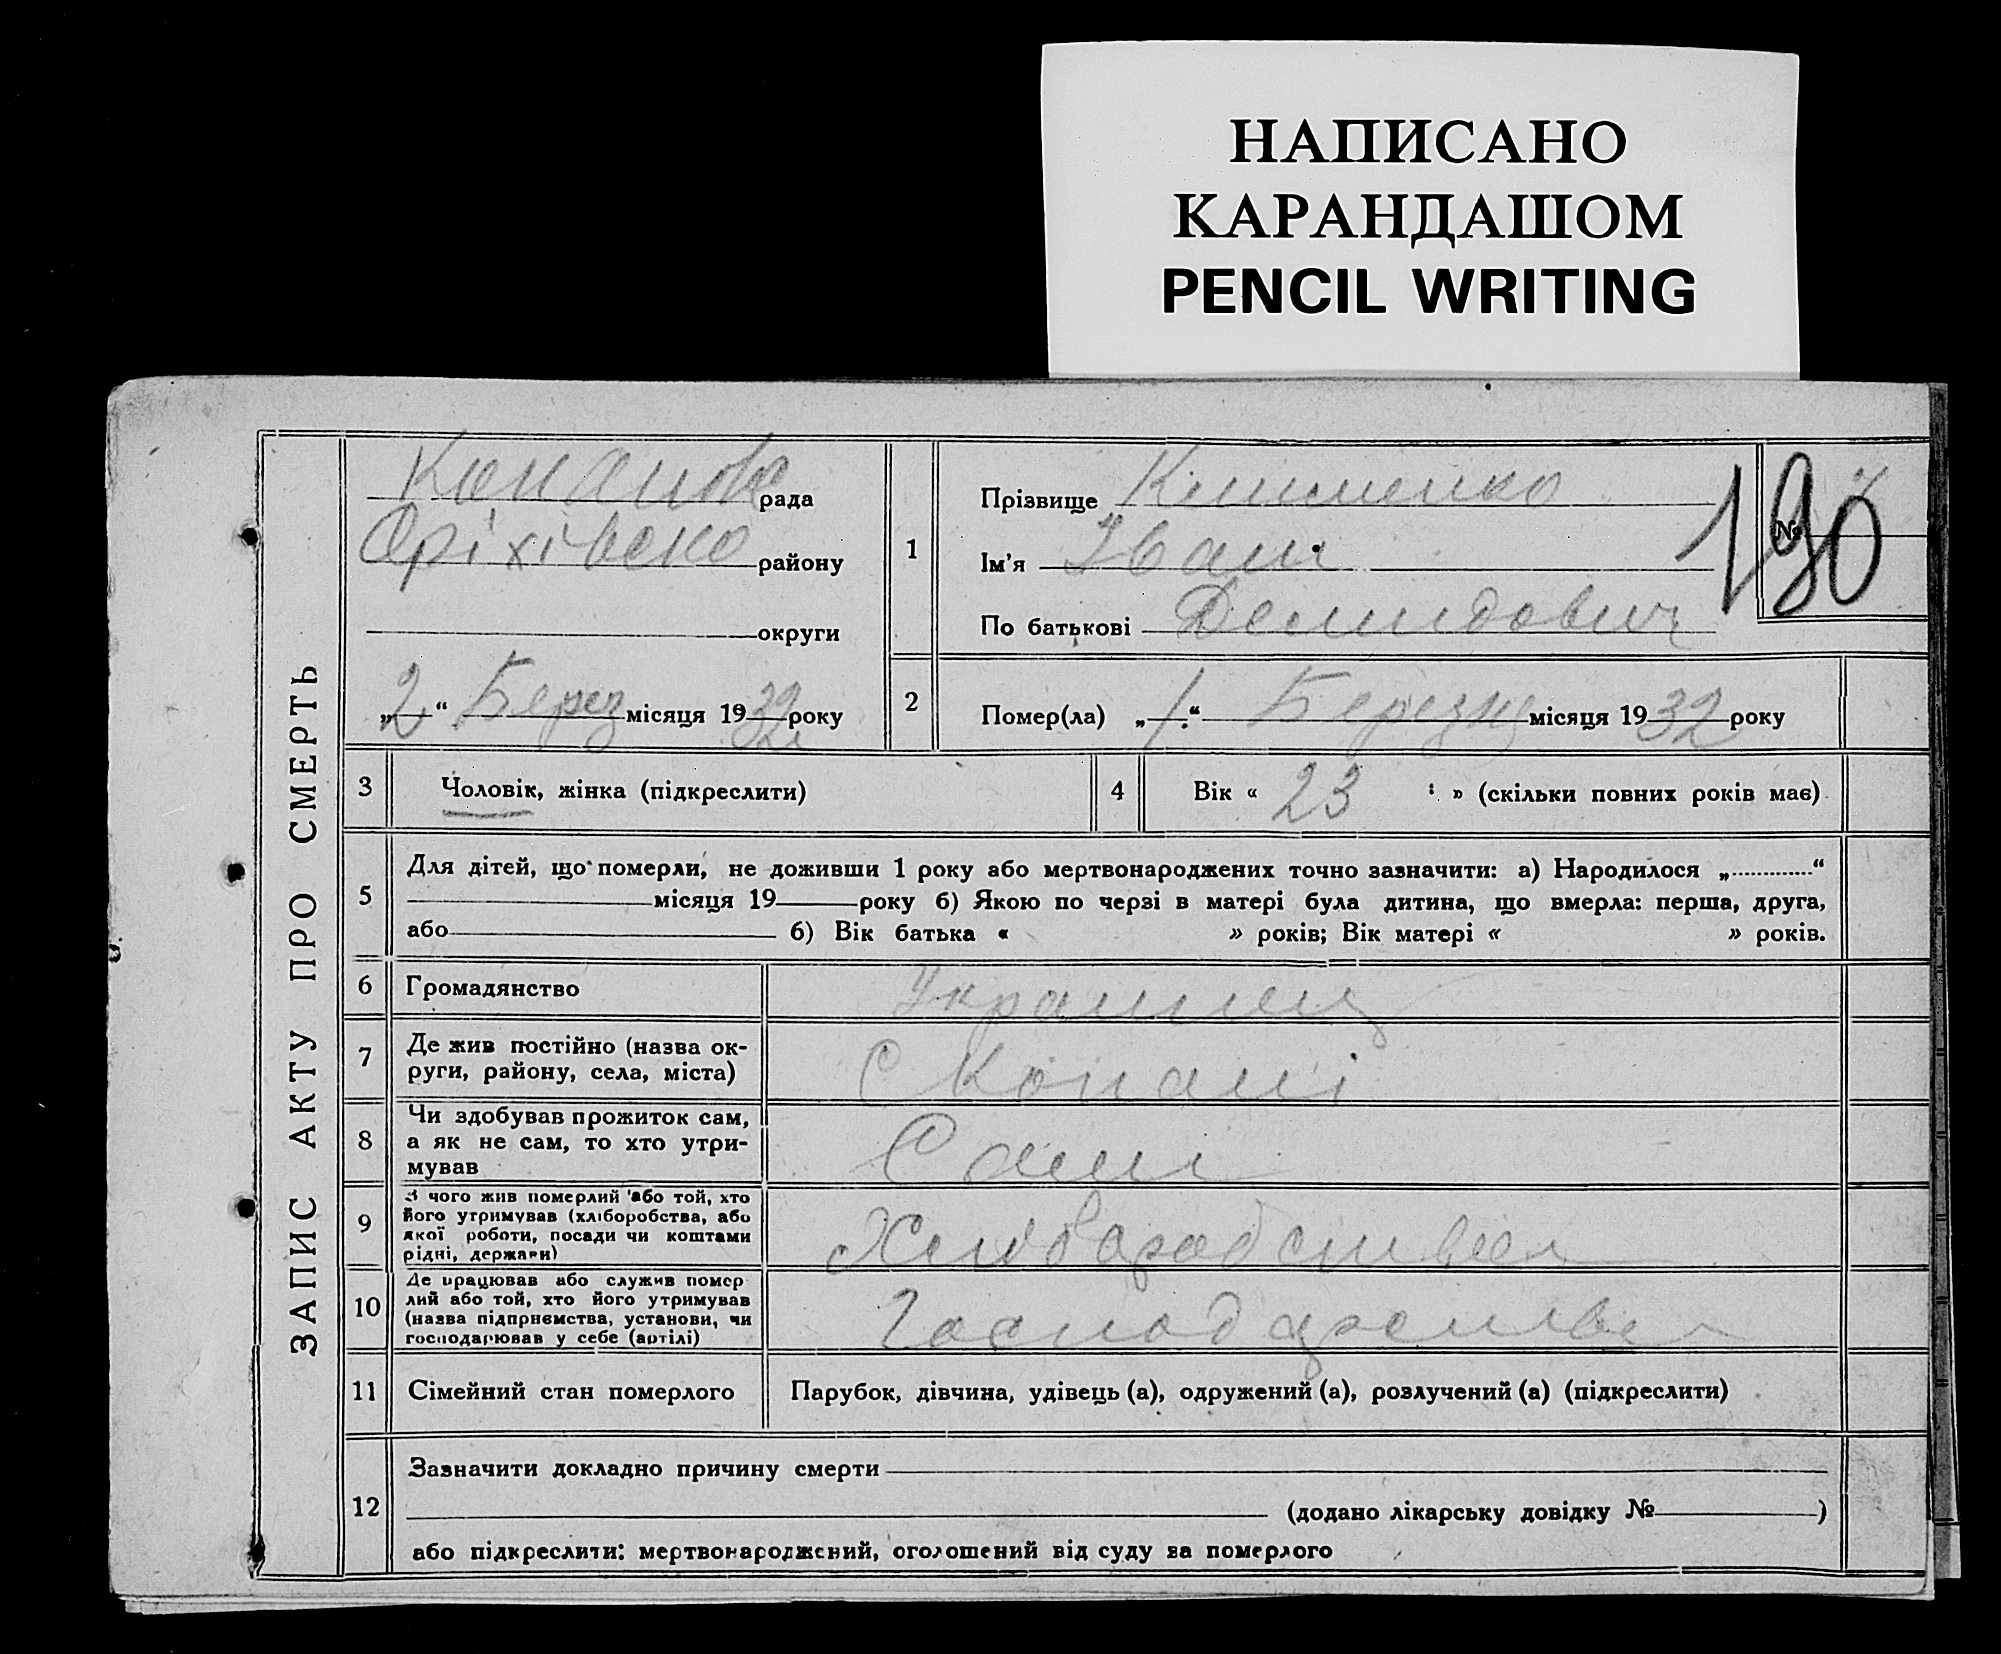 НАПИСАНО
КАРАНДАШОМ
PENCIL WRITING
ЗАПИС АКТУ ПРО СМЕРТЬ
рада
Оріхівско району
округи
„2“ Берез місяця 1932 року
1
Прізвище Клименко
Ім'я Іван
По батькові Демидович
№
190
2
Помер(ла) „1“ Березня місяця 1932 року
3
Чоловік, жінка (підкреслити)
4
Вік « 23 » (скільки повних років має)
5
Для дітей, що померли, не доживши 1 року або мертвонароджених точно зазначити: а) Народилося „............“
місяця 19 року б) Якою по черзі в матері була дитина, що вмерла: перша, друга,
або б) Вік батька « » років; Вік матері « » років.
6
Громадянство
Украинец
7
Де жив постійно (назва ок-
руги, району, села, міста)
С Копані
8
Чи здобував прожиток сам,
а як не сам, то хто утри-
мував
Сам
9
З чого жив померлий або той, хто
його утримував (хліборобства, або
якої роботи, посади чи коштами
рідні, держави)
10
Де працював або служив помер
лий або той, хто його утримував
(назва підприємства, установи, чи
господарював у себе (артілі)
11
Сімейний стан померлого
Парубок, дівчина, удівець (а), одружений (а), розлучений (а) (підкреслити)
12
Зазначити докладно причину смерти
(додано лікарську довідку № )
або підкреслити: мертвонароджений, оголошений від суду за померлого